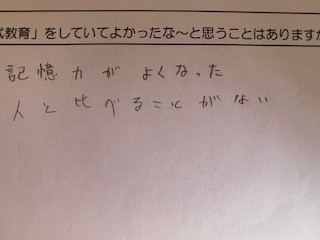 式教育」をしていてよかったな～と思うことはありますか
記憶力がよくなった
人と比べることがない